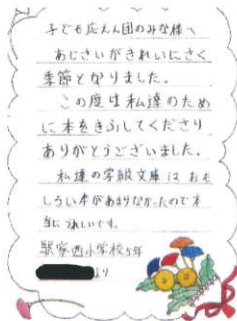 子ども応えん団のみな様へ
あじさいがきれいにさく
季節となりました。
この度は私達のため
に本をきふしてくださり
ありがとうございました。
私達の学級文庫はおも
しろい本があまりなかったので本
当にうれしいです。
駅家西小学校5年
より